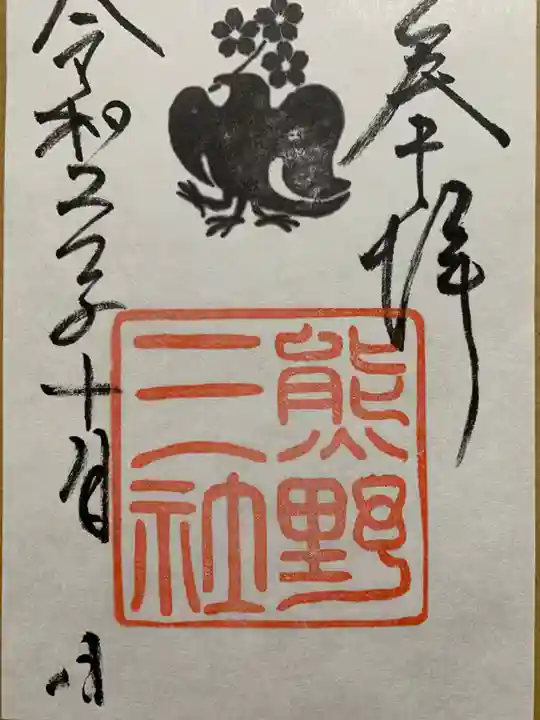 奉拝
熊野
三社
令和五年十月　日